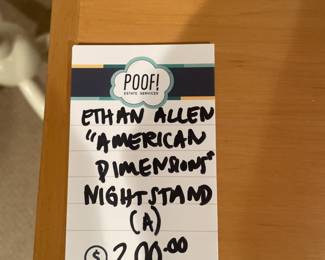 POOF!
ESTATE SERVICES
ETHAN ALLEN
"AMERICAN
DIMENSIONS"
NIGHTSTAND
(A)
$ 200.00